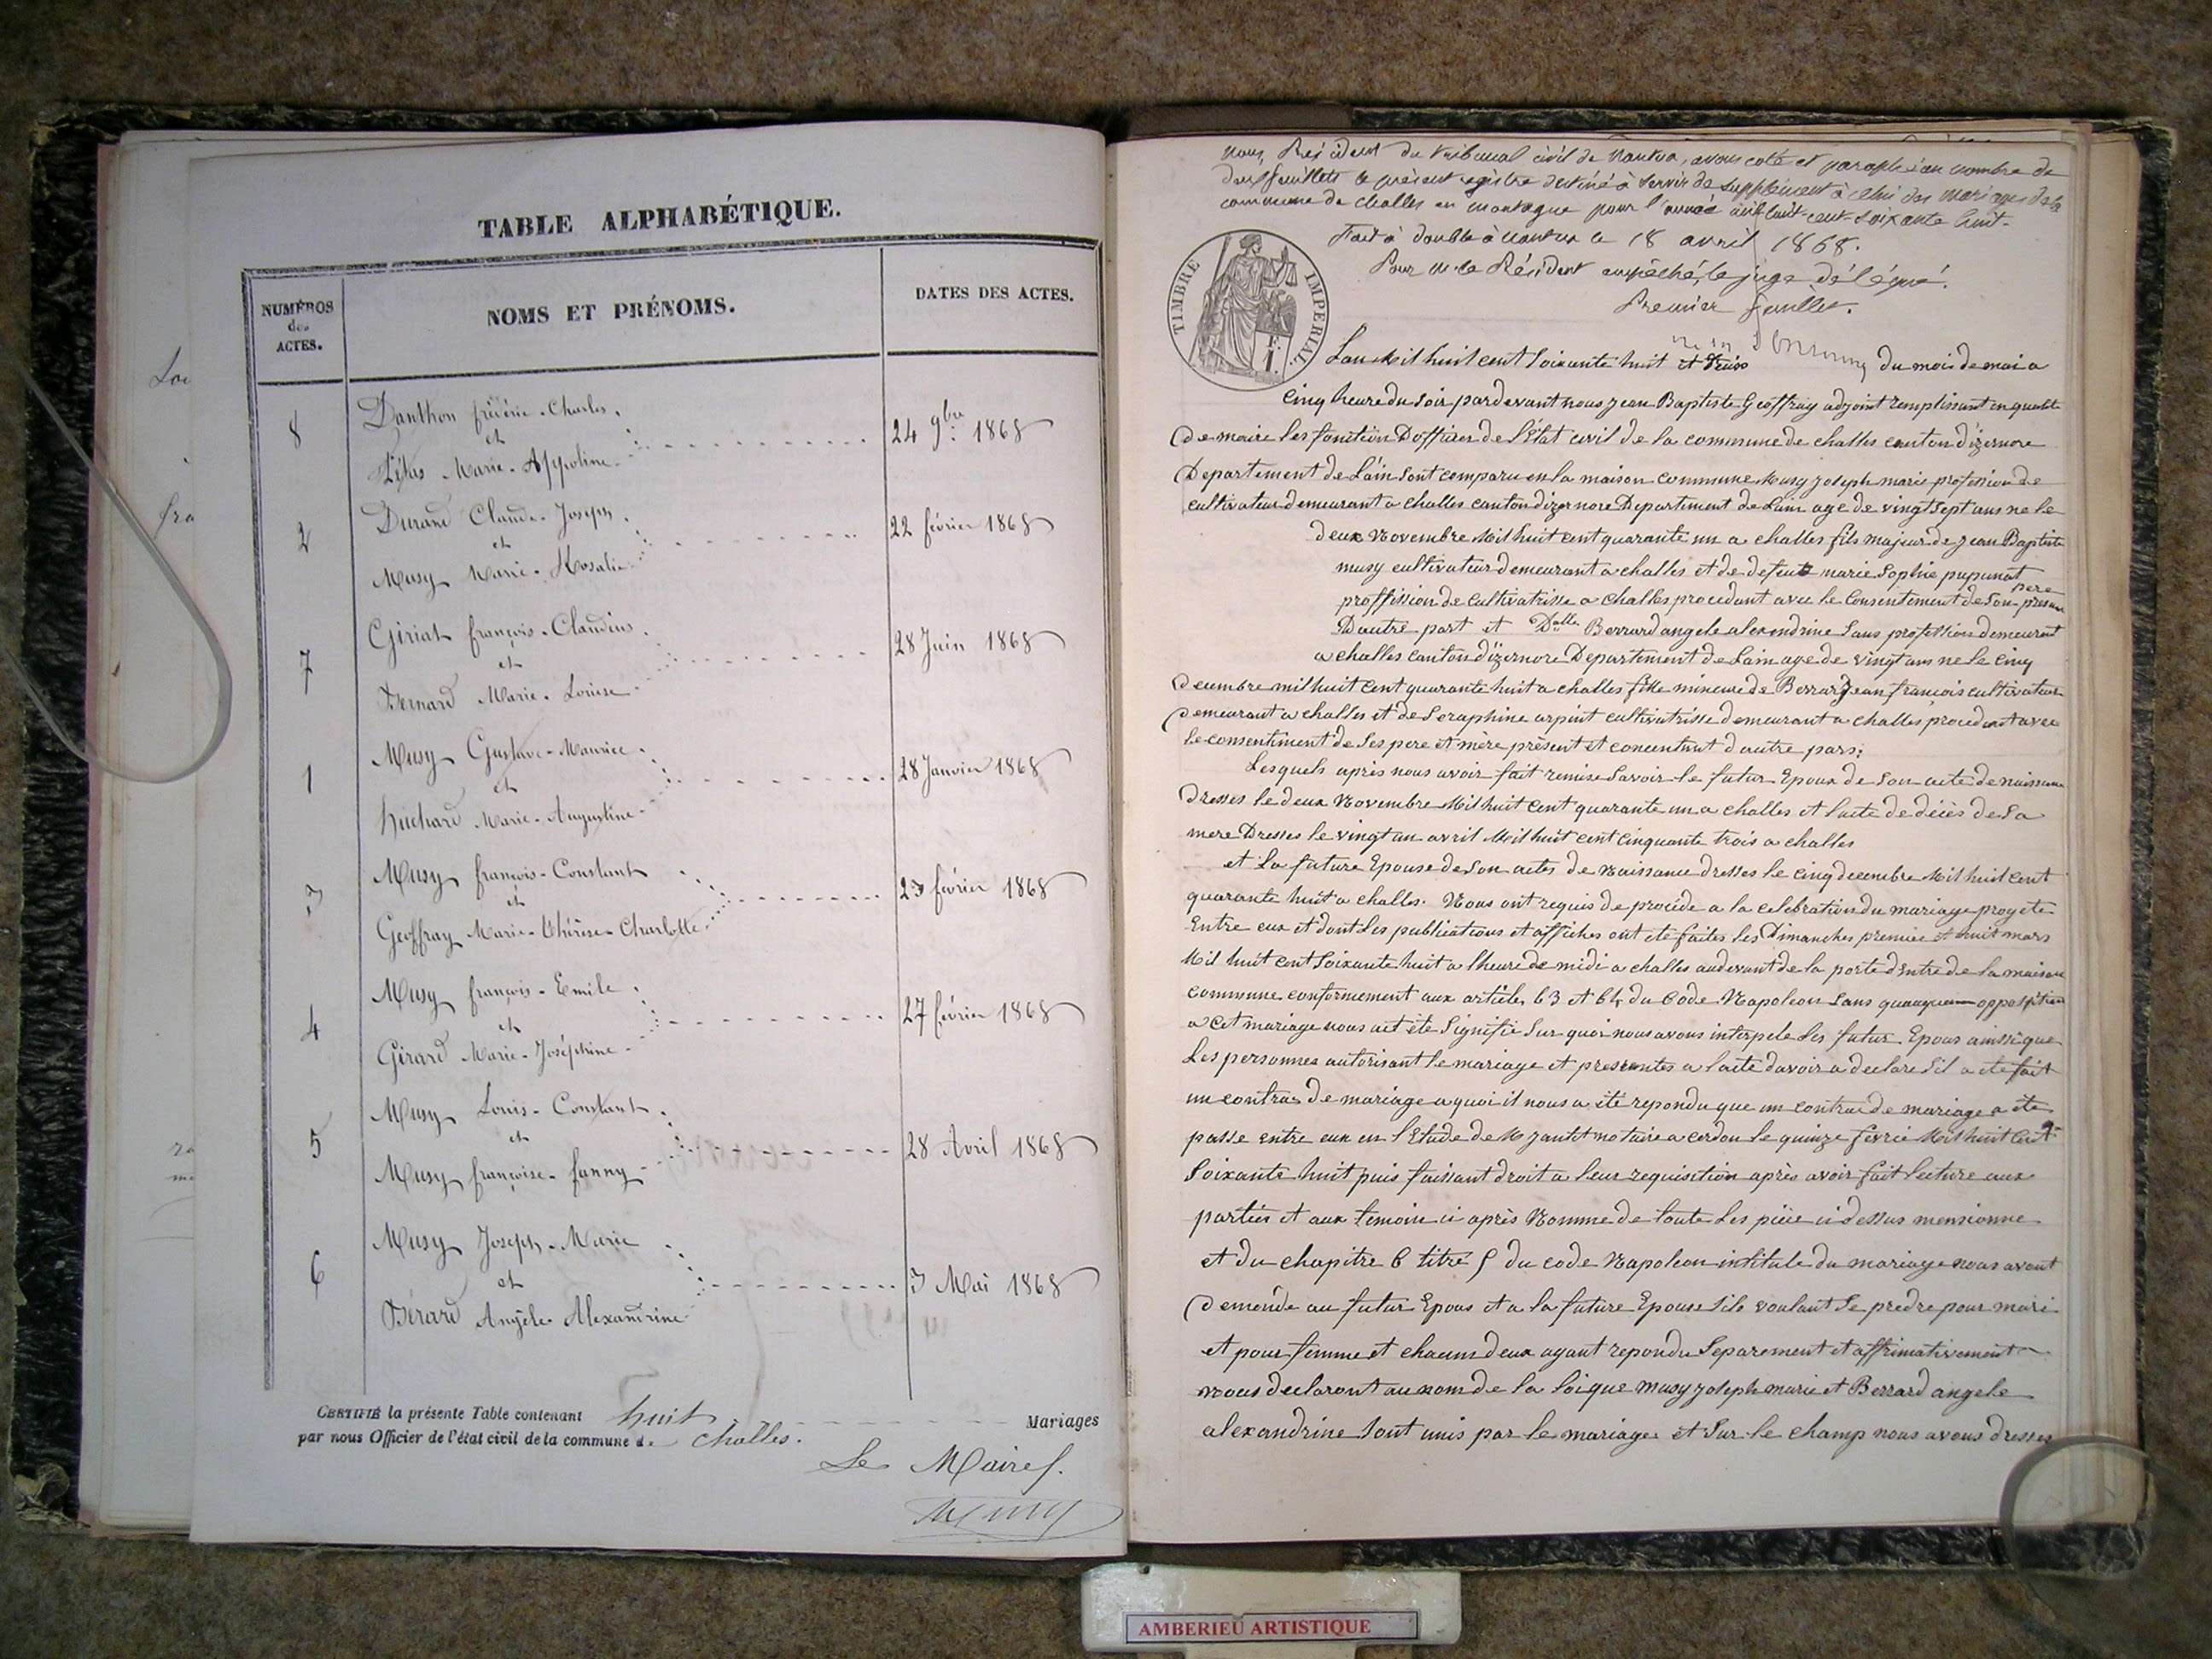 TABLE ALPHABÉTIQUE.
NUMÉROS
des
ACTES.
NOMS ET PRÉNOMS.
DATES DES ACTES.
Danthon fréderic-Charles.
8 et 24 9bre 1868
Marie-Appoline
Durand Claude-Joseph.
2 et 22 février 1868
Musy Marie-Rosalie
Giriat françois-Claudius.
7 et 28 Juin 1868
Bernard Marie-Louise
Musy Gustave-Maurice
1 et 28 Janvier 1868
huchard Marie-Augustine
Musy françois-Constant
3 et 23 février 1868
Geoffray Marie-Thérèse-Charlotte
Musy françois-Emile
4 et 27 février 1868
Girard Marie-Joséphine
Musy Louis-Constant
5 et 28 Avril 1868
Musy françoise-fanny
Musy Joseph-Marie
6 et 3 Mai 1868
Bérard Angèle Alexandrine
CERTIFIÉ la présente Table contenant huit Mariages
par nous Officier de l'état civil de la commune de Challes.
Le Maire
Musy
nous Président du tribunal civil de Nantua, avons coté et paraphé au nombre de
deux feuillets le présent registre destiné à servir de supplément à celui des Mariages de la
commune de Challes en montagne pour l'année mil huit cent soixante huit.
Fait à double à Nantua le 18 avril 1868.
Pour Mr le Président empêché, le juge délégué.
Premier feuillet.
TIMBRE IMPERIAL
Lan Mil huit cent Soixante huit et trois du mois de mai a
Cinq heure du Soir pardevant nous Jean Baptiste Geoffray adjoint remplissant en qualité
de maire les fonction Dofficier de lEtat civil de la commune de challes canton dizernore
Departement de Lain Sont comparu en la maison commune Musy Joseph marie profession de
cultivateur demeurant a challes canton dizernore Departement de Lain age de vingt Sept ans ne le
deux Novembre Mil huit cent quarante un a challes fils majeur de Jean Baptiste
musy cultivateur demeurant a challes et de defeute marie Sophie pupunat
proffission de Cultivatrisse a challes procedant avec le Consentement de Son pere present
Dautre part et Dalle Berrard angele alexandrine Sans profession demeurant
a challes canton dizernore Departement de Lain age de vingt ans ne le cinq
decembre mil huit cent quarante huit a challes fille mineure de Berrard Jean francois cultivateur
demeurant a challes et de Seraphine arpint cultivatrisse demeurant a challes procedant avec
le consentiment de Ses pere et mère présent et concentant dautre pars;
Lesquels après nous avoir fait remise Savoir le futur Epoux de Son acte de naissance
Dresses le deux Novembre Mil huit Cent quarante un a challes et lacte de déces de Sa
mere Dresses le vingt un avril Mil huit cent Cinquante trois a challes
et La future Epouse de Son actes de Naissance dresses le Cinq decembre Mil huit Cent
quarante huit a challes. Nous ont requis de procéde a la celebration du mariage progete
Entre eux et dont Les publications et affiches ont ete faites Les Dimanches premier et huit mars
Mil huit cent Soixante huit a lheure de midi a challes audevant de la porte dentré de la maison
commune conformement aux article, 63 et 64 du Code Napoleon Sans quauqune oppossition
a cet mariage nous ait éte Signifie Sur quoi nous avons interpele Les futur Epous ainssi que
Les personnes autorisant le mariage et pressentes a lacte davoir a declare Sil a ete fait
un contras de mariage a quoi il nous a été repondu que un contrac de mariage a éte
passe entre eux en lEtude de M Jantet notaire a cerdon le quinze fevrié Mil huit Cent
Soixante huit puis faissant droit a leur requisition après avoir fait lecture aux
partiés et aux temoin ci après Nomme de toute Les piéce ci dessus mensionne
et du chapitre 6 titre 5 du code Napoleon intitule du mariage nous avont
demande au futur Epous et a la future Epouse Sils voulant Se predre pour mari
et pour femme et chacuns deux ayant repondu Separement et affrimativement
nous declaront au nom de la loi que Musy Joseph marie et Berrard angele
alexandrine Sont unis par le mariage et Sur le champ nous avons dresses
AMBERIEU ARTISTIQUE